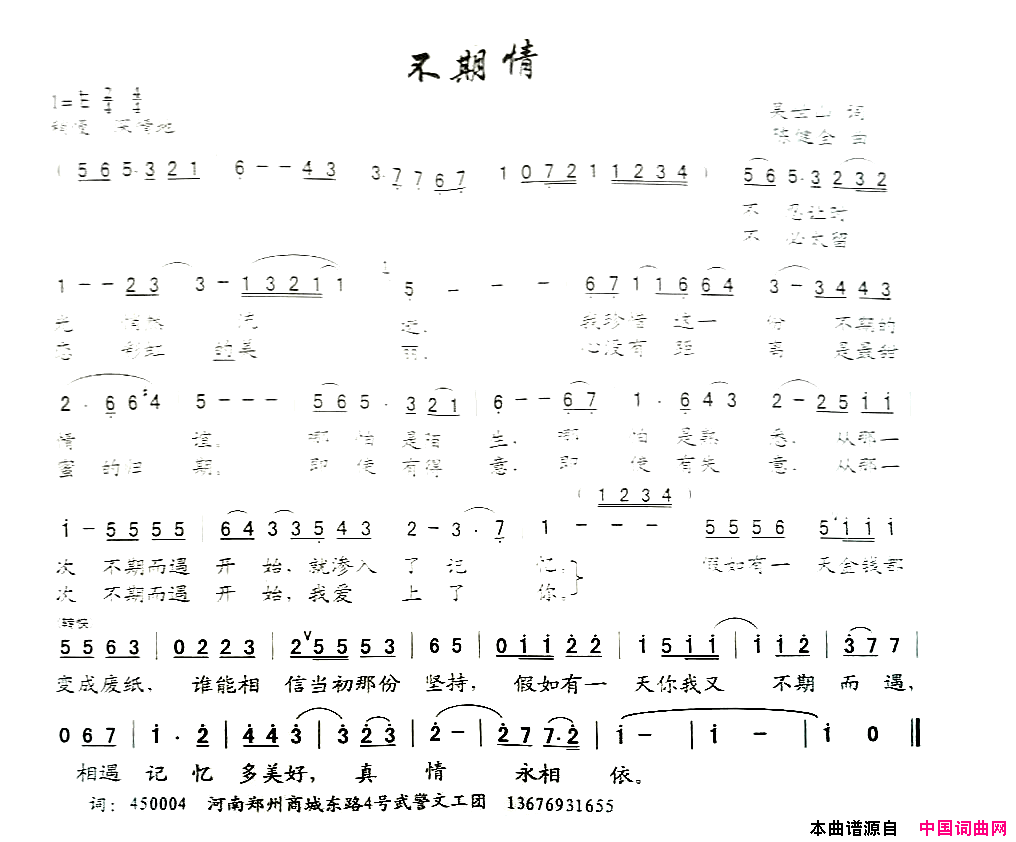 不期情
1=E 2/4 4/4
稍慢 深情地
吴士山 词
陈健全 曲
( 5 6 5· 3 2 1 6 - - 4 3 3· 7 7 6 7 1 0 7 2 1 1 2 3 4 ) 5 6 5· 3 2 3 2
不 忍让时
不 必太留
1 - - 2 3 3 - 1 3 2 1 1 5 - - - 6 7 1 1 6 6 4 3 - 3 4 4 3
光 流 逝, 我珍惜 这一 份 不期的
恋 彩虹 的美 丽, 心没有 距 离 是最甜
2 · 6 6 4 5 - - - 5 6 5 · 3 2 1 6 - - 6 7 1 · 6 4 3 2 - 2 5 i i
情 谊。 哪 怕 是陌 生, 哪 怕 是熟 悉, 从那一
蜜 的归 期。 即 使 有得 意, 即 使 有失 意, 从那一
( 1 2 3 4 )
i - 5 5 5 5 6 4 3 3 5 4 3 2 - 3 · 7 1 - - - 5 5 5 6 5 i i i
次 不期而遇 开 始, 就渗入 了 记 忆。 假如有一 天金钱都
次 不期而遇 开 始, 我爱 上 了 你。
转快
5 5 6 3 | 0 2 2 3 | 2 V 5 5 5 3 | 6 5 | 0 i i 2 2 | i 5 i i | i i 2 | 3 7 7 |
变成废纸, 谁能相 信当初那份 坚持, 假如有一 天你我又 不期 而 遇,
0 6 7 | i · 2 | 4 4 3 | 3 2 3 | 2 - | 2 7 7· 2 | i - | i - | i 0 ‖
相遇 记 忆 多美好, 真 情 永相 依。
词: 450004 河南郑州商城东路4号武警文工团 13676931655
本曲谱源自 中国词曲网